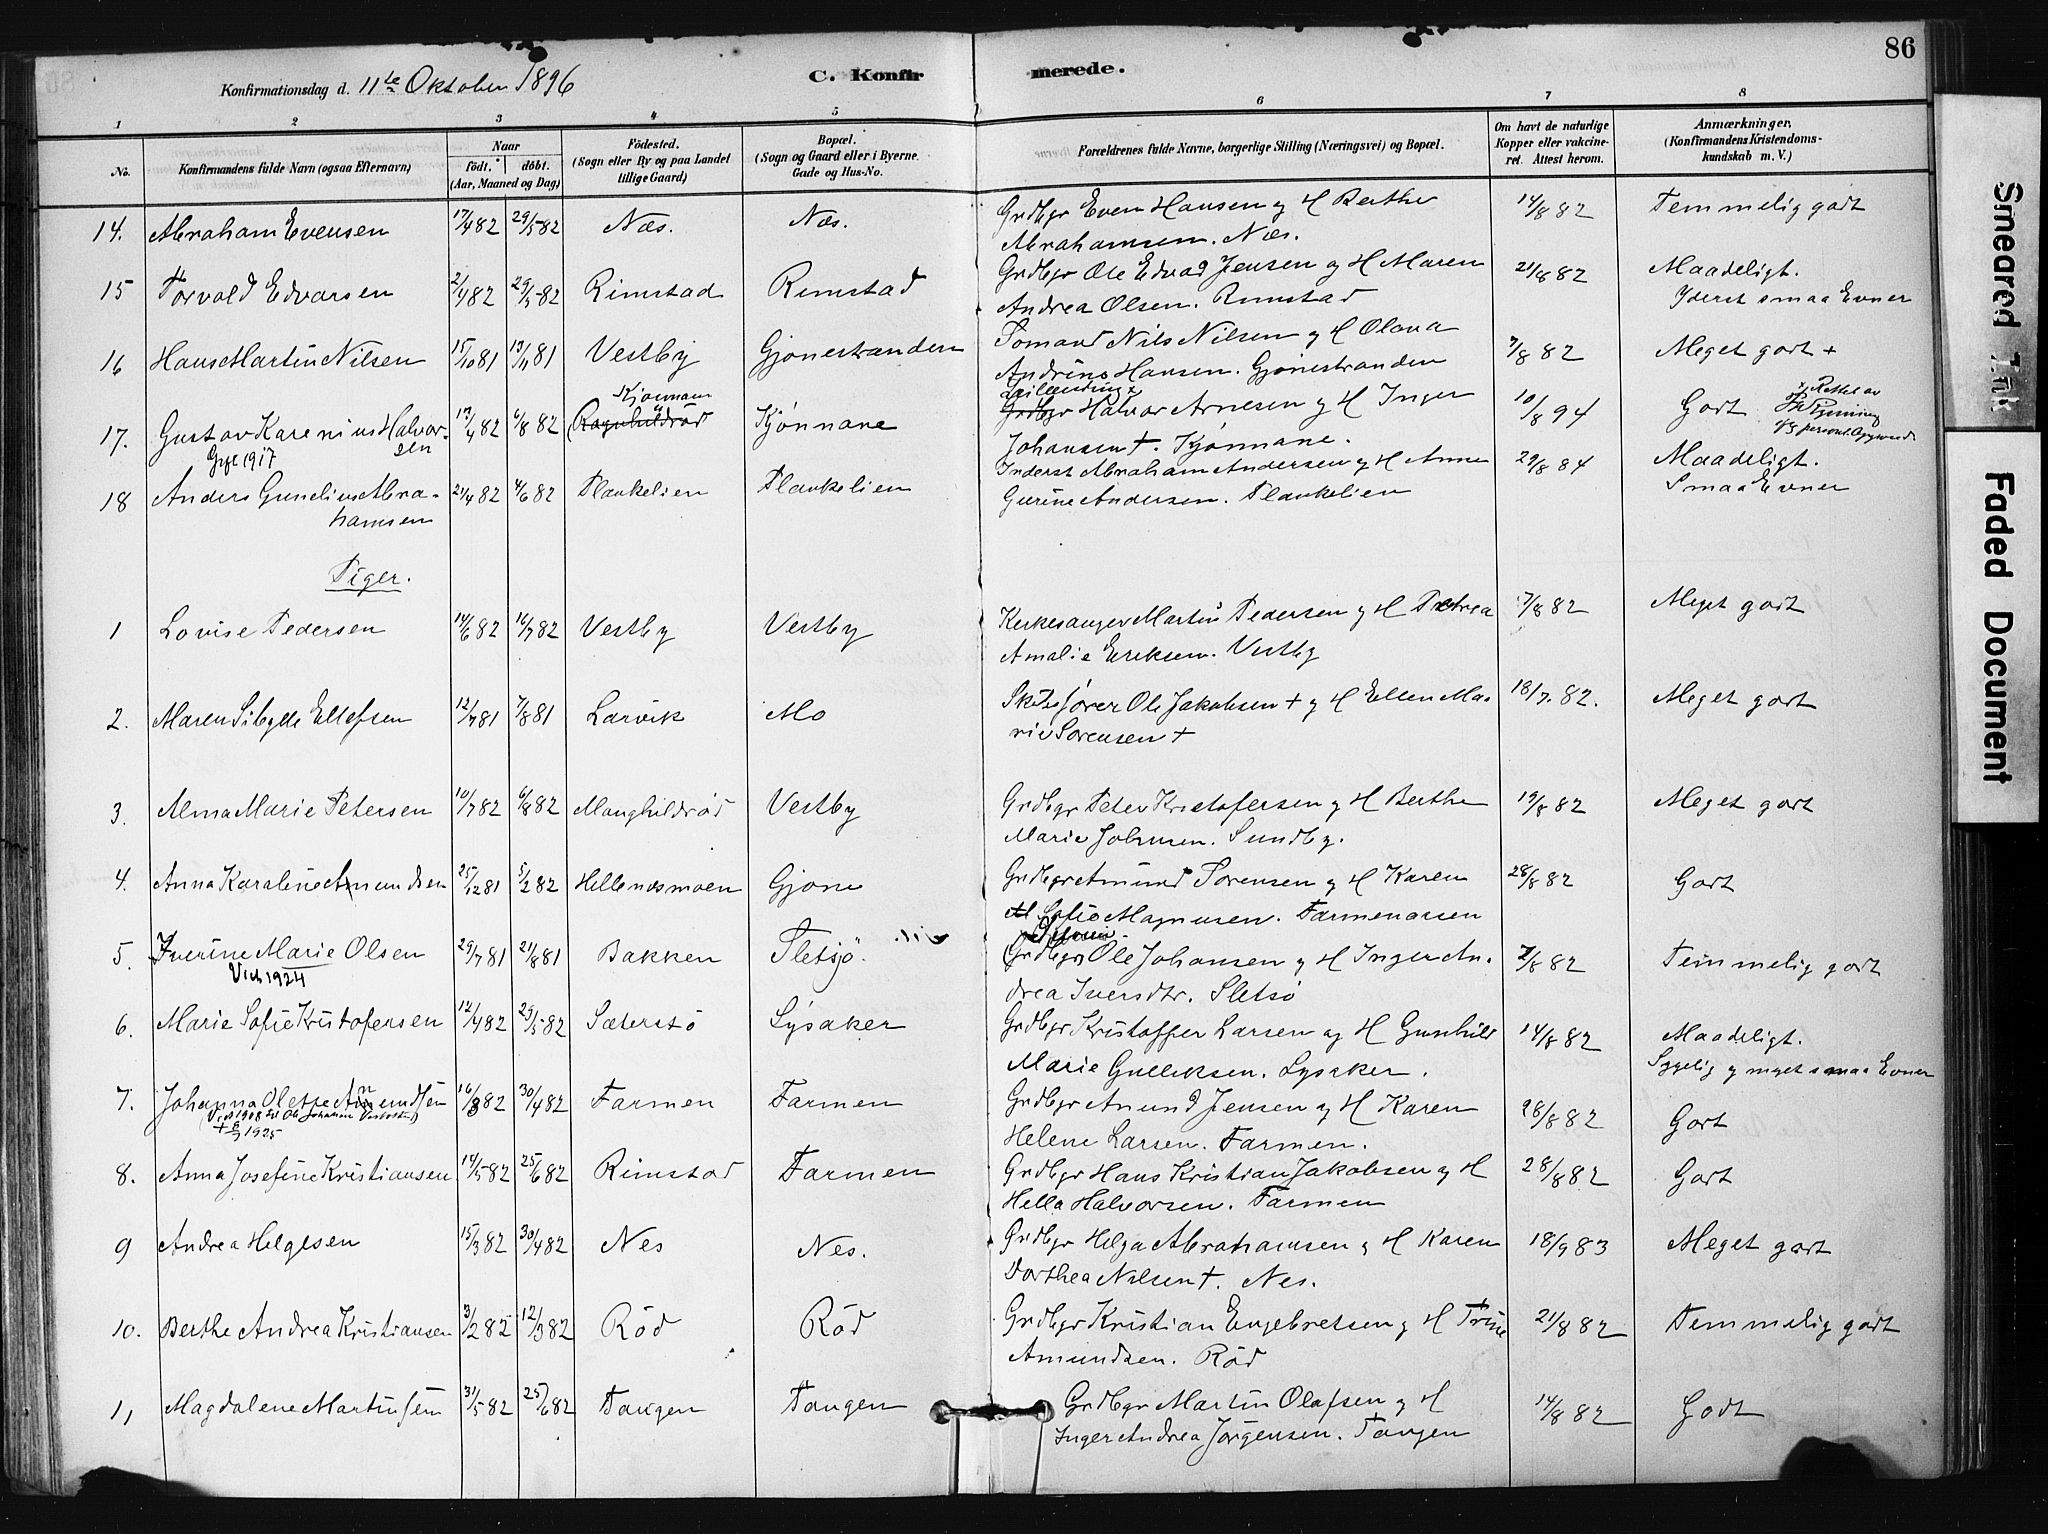 86
Konfirmationsdag d. 11te Oktober 1896
C. Konfirmerede.
1 2 3 4 5 6 7 8
No. Konfirmandens fulde Navn (ogsaa Efternavn) Naar födt. döbt. (Aar, Maaned og Dag) Födested. (Sogn eller By og paa Landet tillige Gaard) Bopæl. (Sogn og Gaard eller i Byerne Gade og Hus-No. Forældrenes fulde Navne, borgerlige Stilling (Næringsvei) og Bopæl. Om havt de naturlige Kopper eller vakcineret. Attest herom. Anmærkninger. (Konfirmandens Kristendomskundskab m. V.)
14. Abraham Evensen 17/4 82 29/5 82 Næs. Næs. Grdbgr Even Hansen og H Berthe 14/8 82 Temmelig godt
Abrahamsen. Næs.
15 Torvald Edvarsen 2/4 82 29/5 82 Rimstad Rimstad Grdbgr Ole Edvad Jensen og H Maren 21/8 82 Maadeligt.
Andrea Olsen. Rimstad Yderst smaa Evner
16 Hans Martin Nilsen 15/10 81 13/11 81 Vestby Gjonestranden Sømand Nils Nilsen og H Olava 7/8 82 Meget godt +
Andrine Hansen. Gjonestranden
17. Gustav Karenius Halvorsen 13/4 82 6/8 82 Ragnhildrød Kjønnane Kjønnane Grdbgr Halvor Arnesen og H Inger 10/8 94 Godt
Gift 1917 Johansen +. Kjønnane.
18 Anders Gunelius Abrahamsen 21/4 82 4/6 82 Plankelien Plankelien Inderst Abraham Andersen og H Anne 29/8 84 Maadeligt.
Gurine Andersen. Plankelien Smaa Evner
Piger.
1 Lovise Pedersen 14/6 82 16/7 82 Vestby Vestby Kirkesanger Martin Pedersen og H Petrea 7/8 82 Meget godt
Amalie Eriksen. Vestby
2. Maren Sibylle Ellefsen 12/7 81 7/8 81 Larvik Mo Skibsfører Ole Jakobsen + og H Ellen Ma- 18/7. 82. Meget godt
rie Sørensen +
3. Alma Marie Petersen 10/7 82 6/8 82 Manghildrød Vestby Grdbgr Peter Kristofersen og H Berthe 19/8 82 Meget godt
Marie Johnsen. Sundby.
4. Anna Karoline Amundsen 25/12 81 5/2 82 Hellenæsmoen Gjone Grdbgr Amund Sørensen og H Karen 28/8 82 Godt
Sofie Magnusen. Farmenaasen
5. Iverine Marie Olsen 29/7 81 21/8 81 Bakken Sletsjö. Grdbgr Ole Johansen og H Inger An- 7/8 82 Temmelig godt
Viet 1924 drea Iversdtr. Sletsø
6. Marie Sofie Kristofersen 12/4 82 29/5 82 Sæterstø Lysaker Grdbgr Kristoffer Larsen og H Gunhild 14/8 82 Maadeligt.
Marie Gulliksen. Lysaker. Sygelig og meget smaa Evner
7. Johanna Olette Anundsen 16/3 82 30/4 82 Farmen Farmen Grdbgr Anund Jensen og H Karen 28/8 82 Godt
+ 8/7 1925 Helene Larsen. Farmen.
8. Anna Josefine Kristiansen 14/5 82 25/6 82 Rimstad Farmen Grdbgr Hans Kristian Jakobsen og H 28/8 82 Godt
Hella Halvorsen. Farmen
9 Andrea Helgesen 15/3 82 30/4 82 Nes Nes. Grdbgr Helge Abrahamsen og H Karen 18/9 83 Meget godt
Dorthea Nilsen +. Nes.
10. Berthe Andrea Kristiansen 3/2 82 12/3 82 Röd Röd Grdbgr Kristian Engebretsen og H Trine 21/8 82 Temmelig godt
Amundsen. Röd
11 Magdalene Martinsen 31/5 82 25/6 82 Tangen Tangen Grdbgr Martin Olafsen og H 14/8 82 Godt
Inger Andrea Jörgensen. Tangen
Smeared Ink
Faded Document